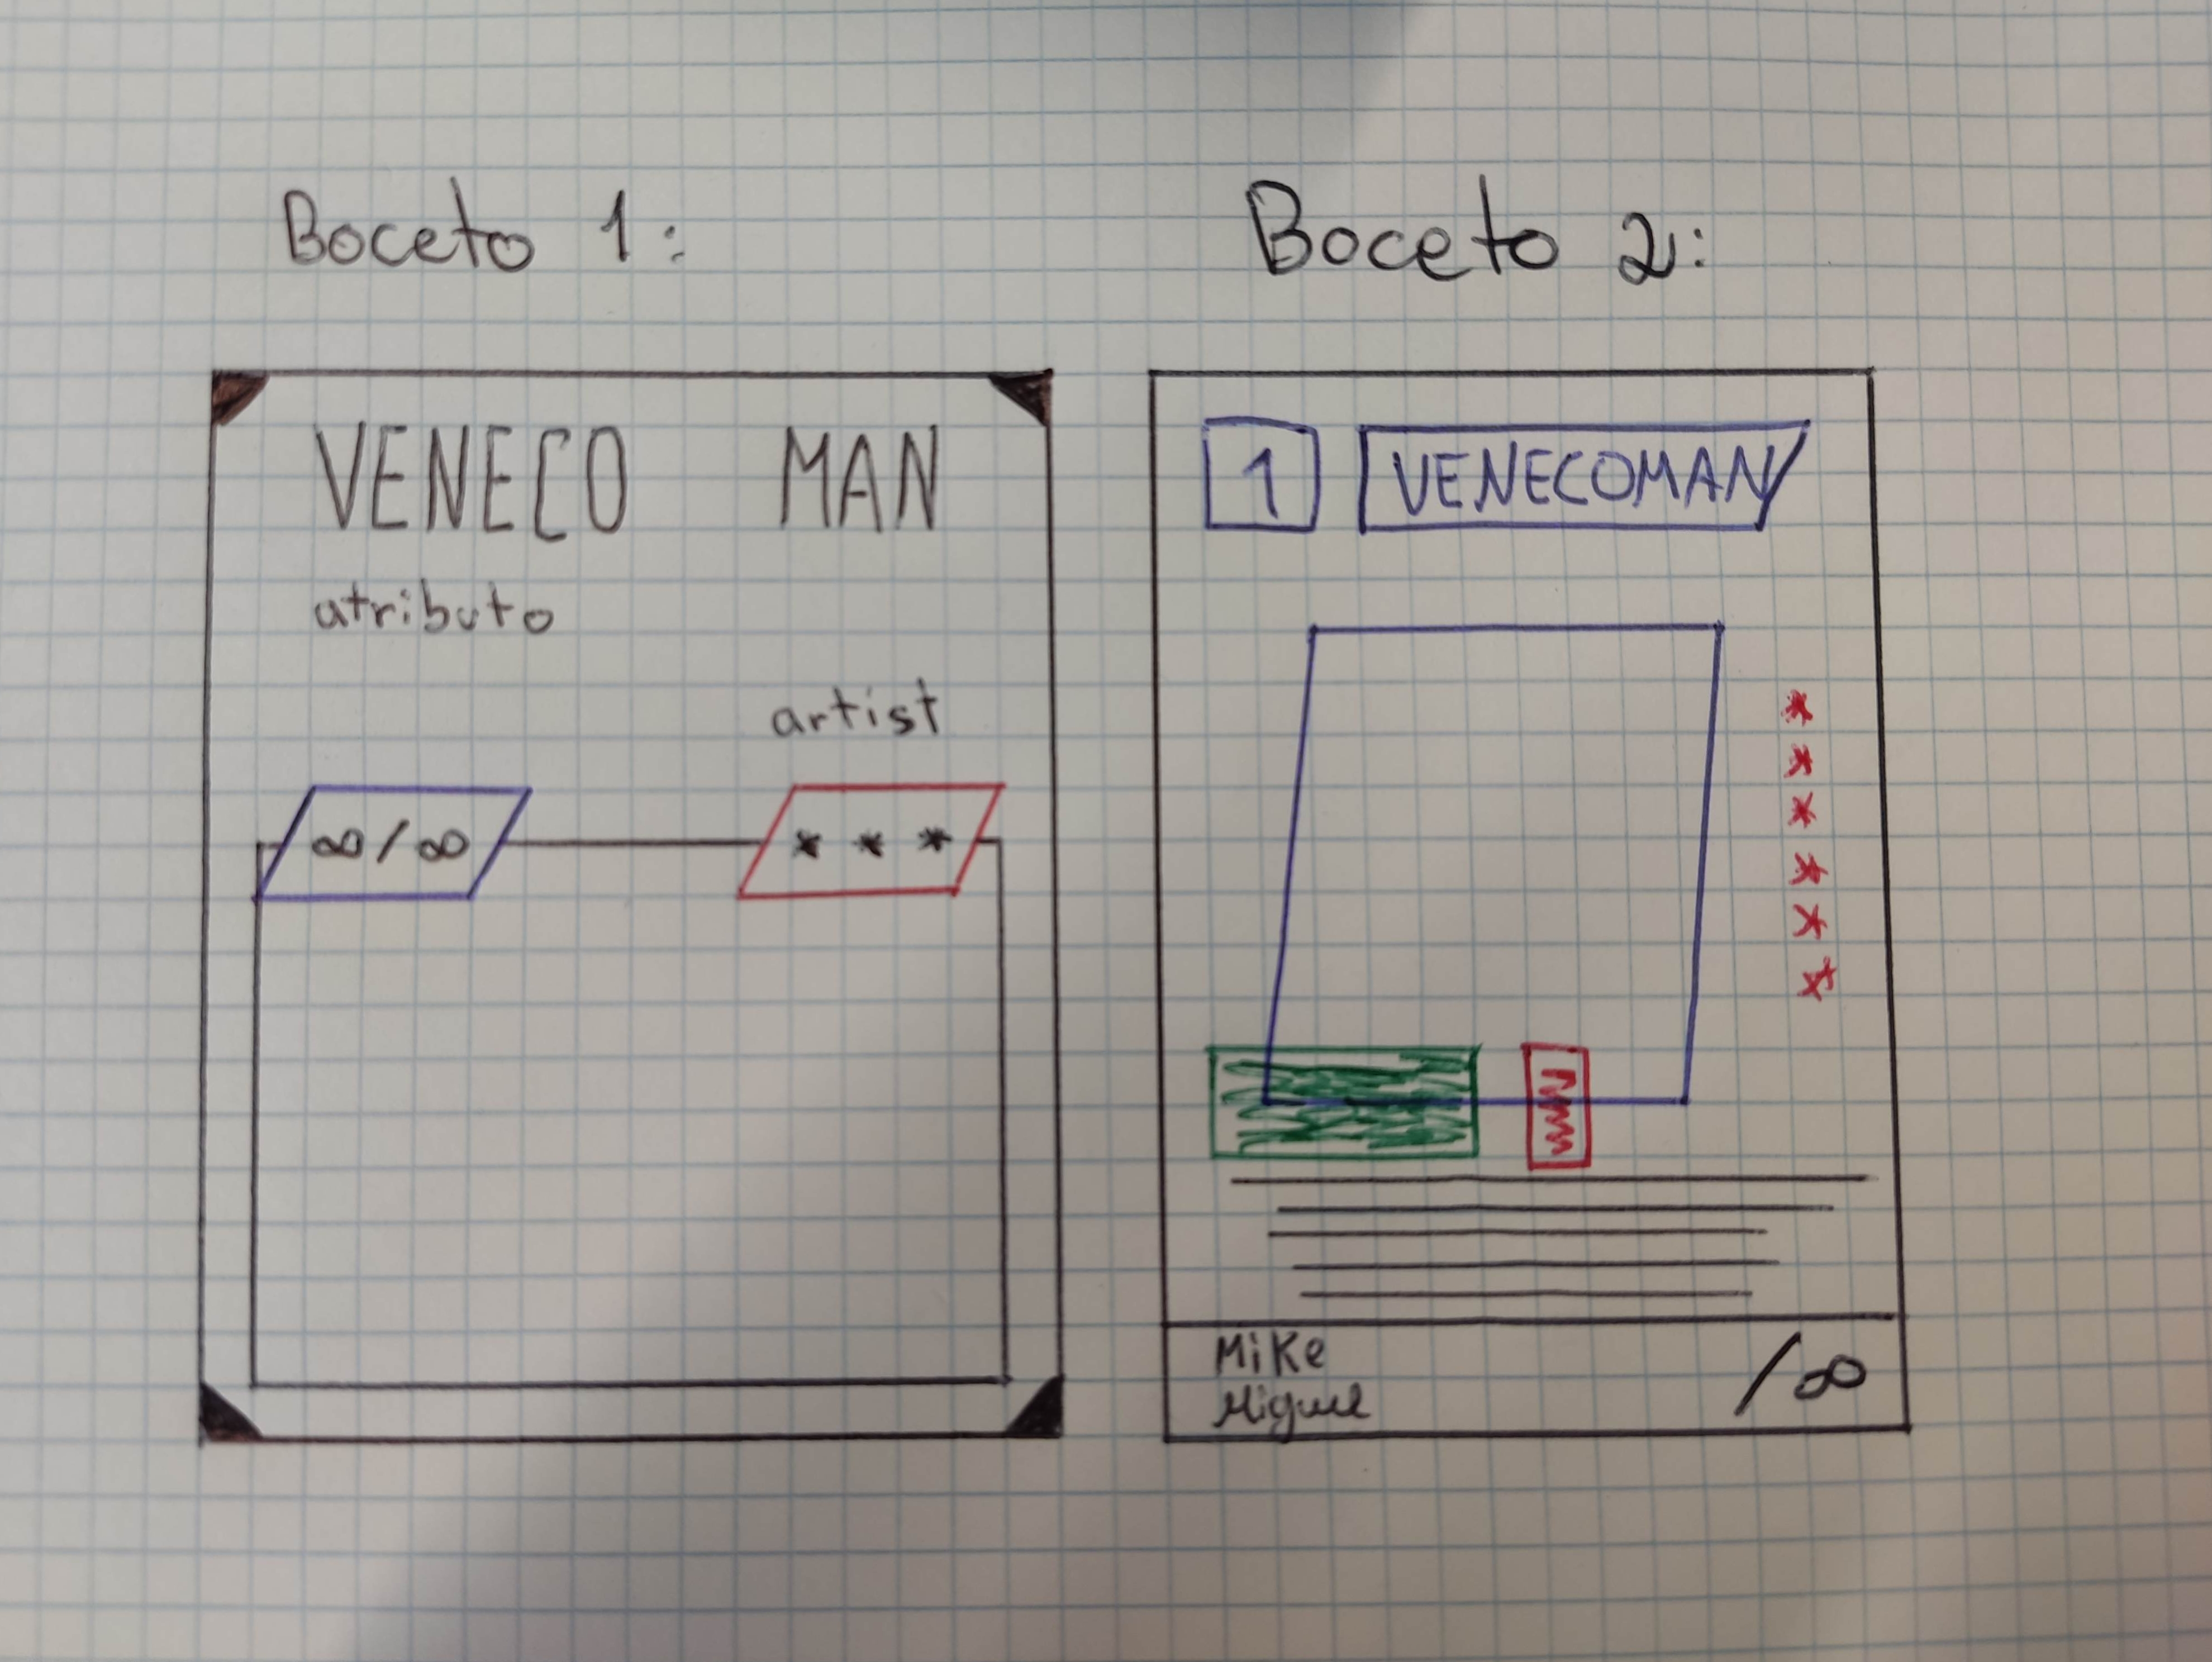 Boceto 1:
VENECO MAN
atributo
artist
∞/∞
* * *
Boceto 2:
1
VENECOMAN
* * * * * *
Mike
Migue
/∞